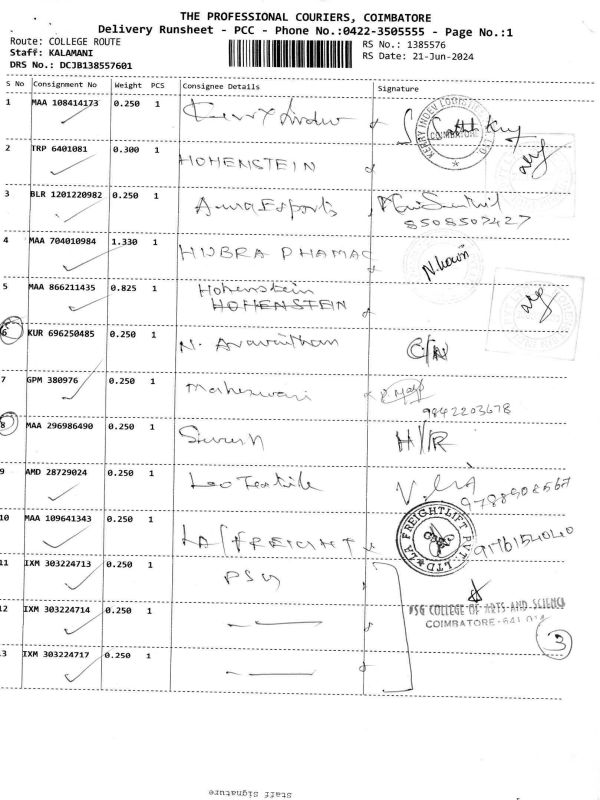 THE PROFESSIONAL COURIERS, COIMBATORE
Delivery Runsheet - PCC - Phone No.:0422-3505555 - Page No.:1
Route: COLLEGE ROUTE
Staff: KALAMANI
DRS No.: DCJB138557601
RS No.: 1385576
RS Date: 21-Jun-2024
S No Consignment No Weight PCS Consignee Details Signature
1 MAA 108414173 0.250 1 KERRY INDEV LOGISTICS COIMBATORE
2 TRP 6401081 0.300 1 HOHENSTEIN
3 BLR 1201220982 0.250 1 8508507427
4 MAA 704010984 1.330 1
5 MAA 866211435 0.825 1 Hohenstein
HOHENSTEIN
6 KUR 696250485 0.250 1 N. Aravinthan
7 GPM 380976 0.250 1 Maheswari
9842203678
8 MAA 296986490 0.250 1 H/R
9 AMD 28729024 0.250 1 Leo Textile
10 MAA 109641343 0.250 1 LA/FREIGHT LA FREIGHTLIFT PVT. LTD
11 IXM 303224713 0.250 1 PSG
PSG COLLEGE OF ARTS AND SCIENCE
12 IXM 303224714 0.250 1 COIMBATORE-641 014
3
13 IXM 303224717 0.250 1
Staff Signature